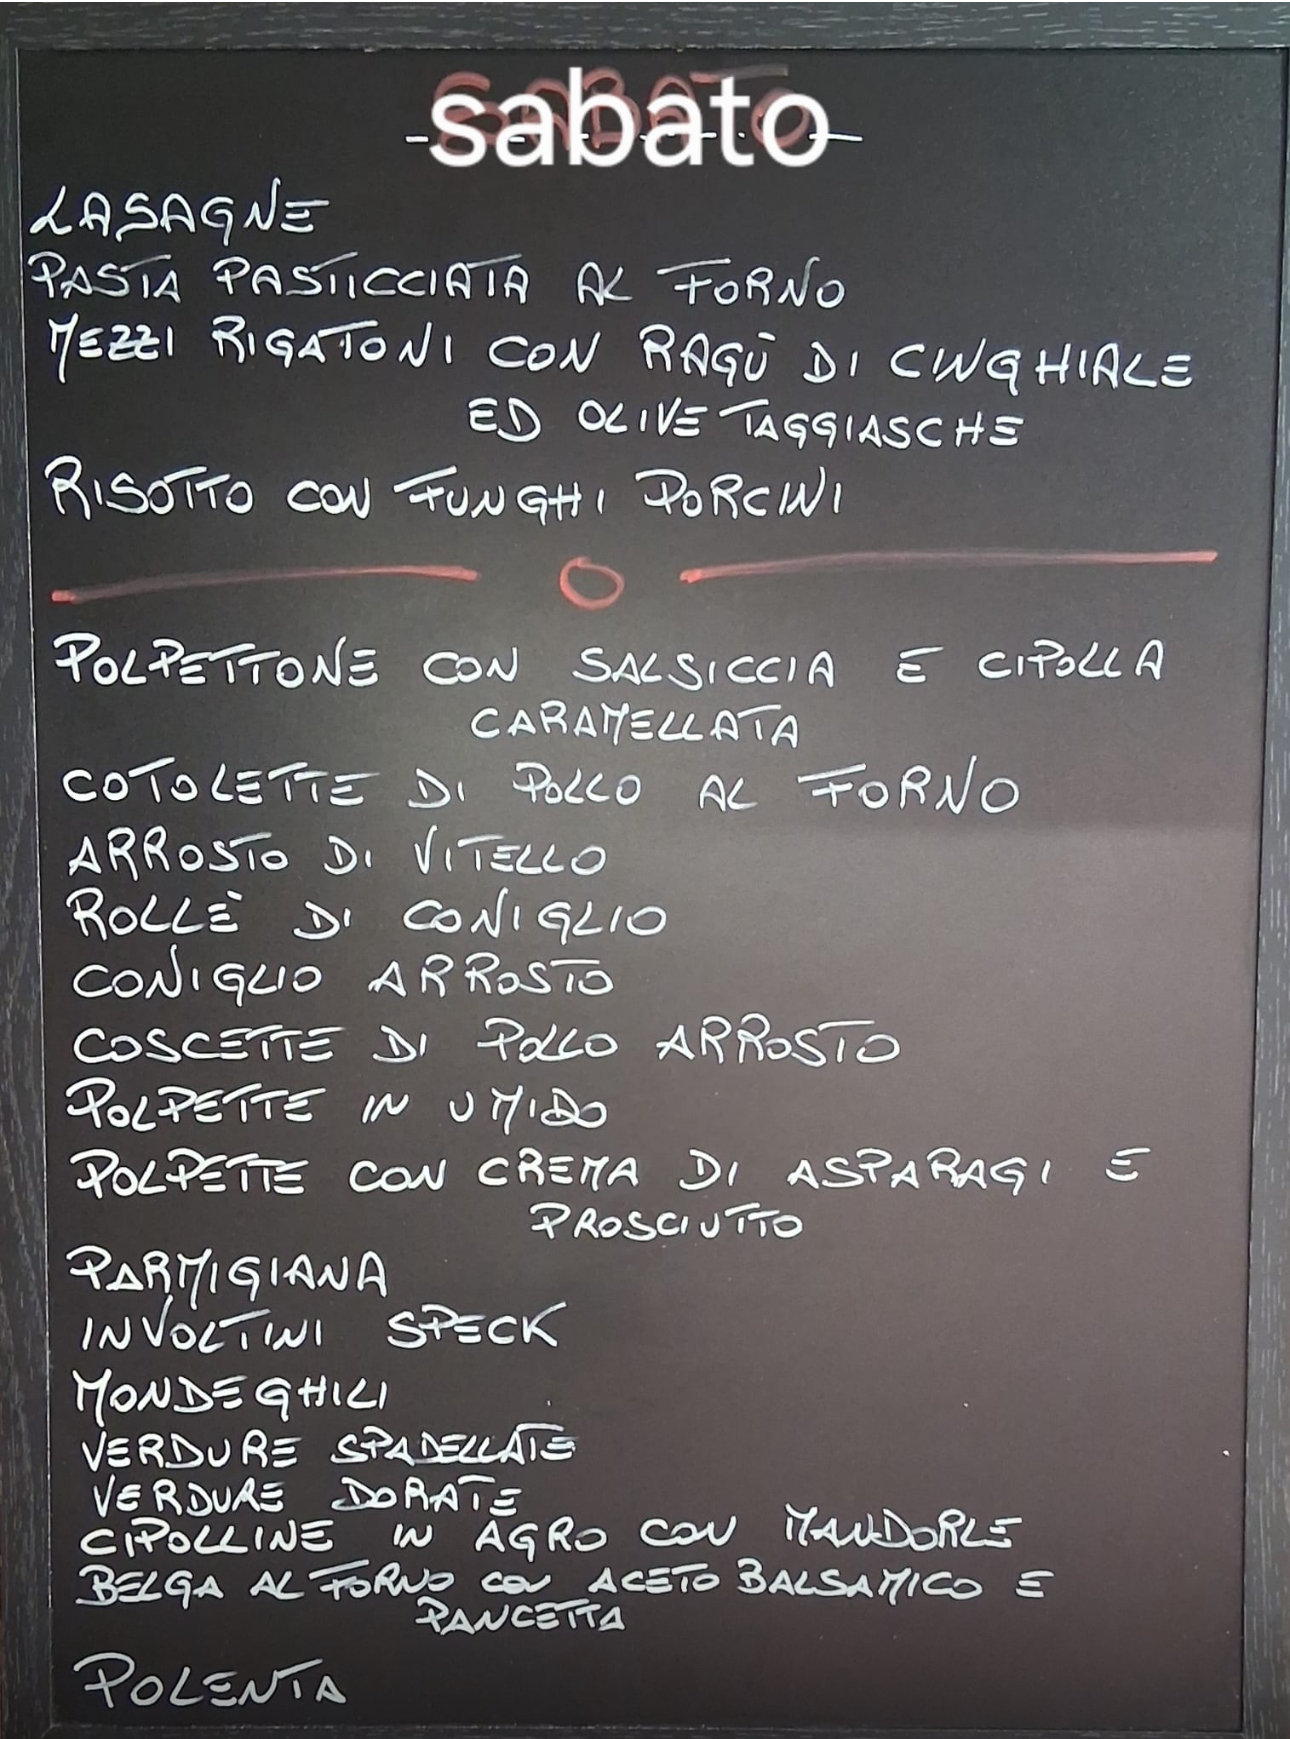 sabato
LASAGNE
PASTA PASTICCIATA AL FORNO
MEZZI RIGATONI CON RAGÙ DI CINGHIALE
ED OLIVE TAGGIASCHE
RISOTTO CON FUNGHI PORCINI
POLPETTONE CON SALSICCIA E CIPOLLA
CARAMELLATA
COTOLETTE DI POLLO AL FORNO
ARROSTO DI VITELLO
ROLLÈ DI CONIGLIO
CONIGLIO ARROSTO
COSCETTE DI POLLO ARROSTO
POLPETTE IN UMIDO
POLPETTE CON CREMA DI ASPARAGI E
PROSCIUTTO
PARMIGIANA
INVOLTINI SPECK
MONDEGHILI
VERDURE SPADELLATE
VERDURE DORATE
CIPOLLINE IN AGRO CON MANDORLE
BELGA AL FORNO CON ACETO BALSAMICO E
PANCETTA
POLENTA